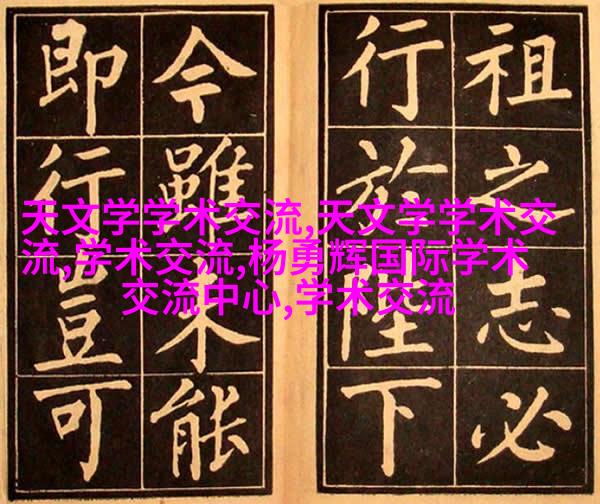 祖之志必
行於陛下
今雖未能
即行豈可
天文学学术交流,天文学学术交
流,学术交流,杨勇辉国际学术
交流中心,学术交流